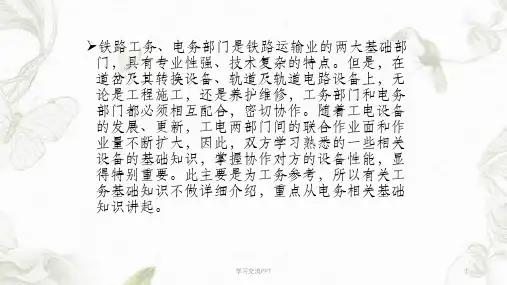 ➢铁路工务、电务部门是铁路运输业的两大基础部
门，具有专业性强、技术复杂的特点。但是，在
道岔及其转换设备、轨道及轨道电路设备上，无
论是工程施工，还是养护维修，工务部门和电务
部门都必须相互配合，密切协作。随着工电设备
的发展、更新，工电两部门间的联合作业面和作
业量不断扩大，因此，双方学习熟悉的一些相关
设备的基础知识，掌握协作对方的设备性能，显
得特别重要。此主要是为工务参考，所以有关工
务基础知识不做详细介绍，重点从电务相关基础
知识讲起。
学习交流PPT
1